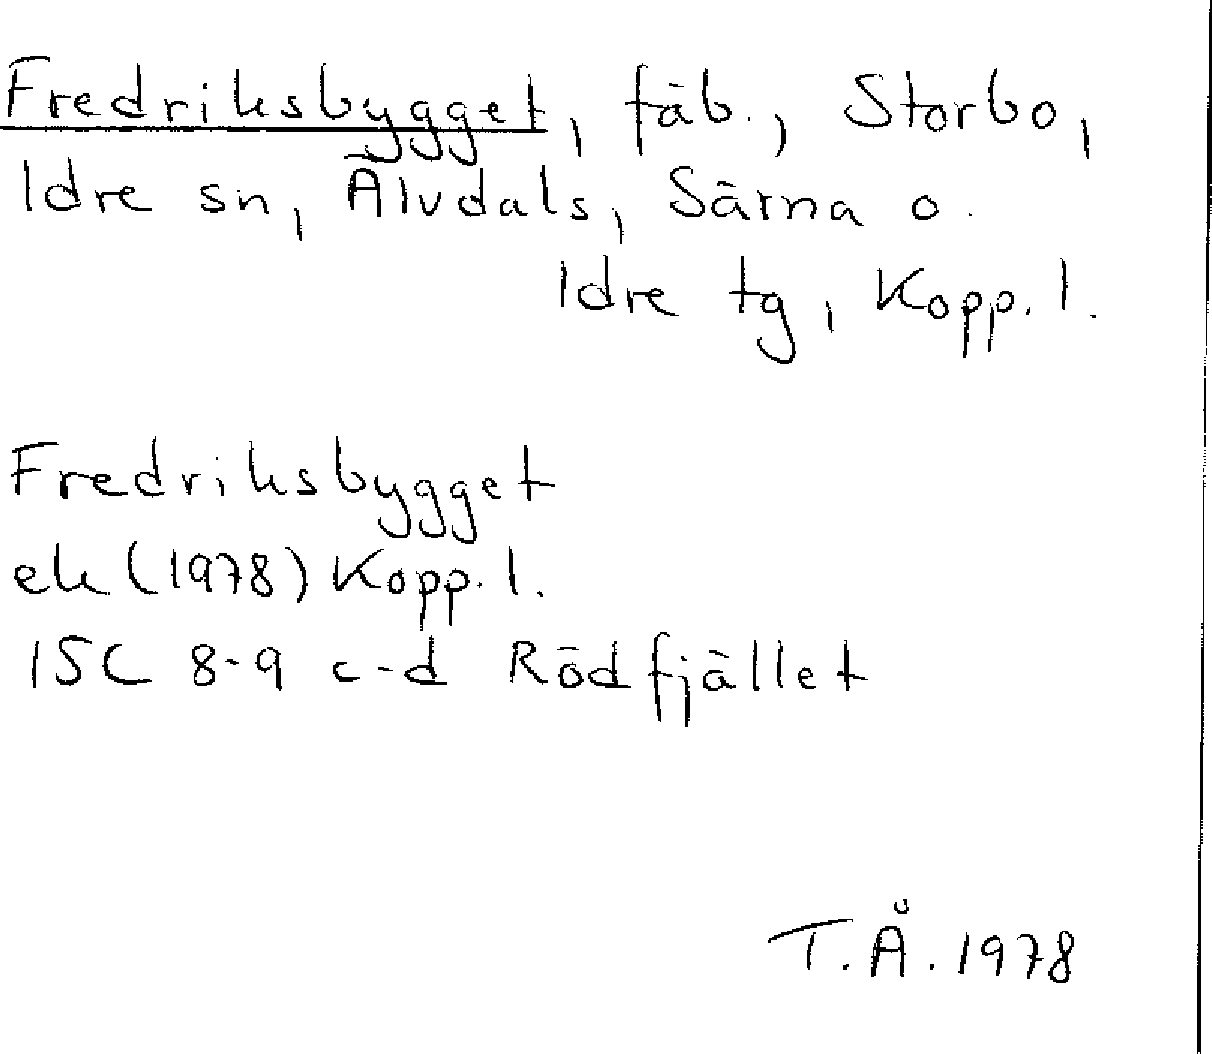 Fredriksbygget, fäb., Storbo,
Idre sn, Älvdals, Särna o.
Idre tg, Kopp. l.
Fredriksbygget
ek (1978) Kopp. l.
15C 8-9 c-d Rödfjället
T.Å. 1978